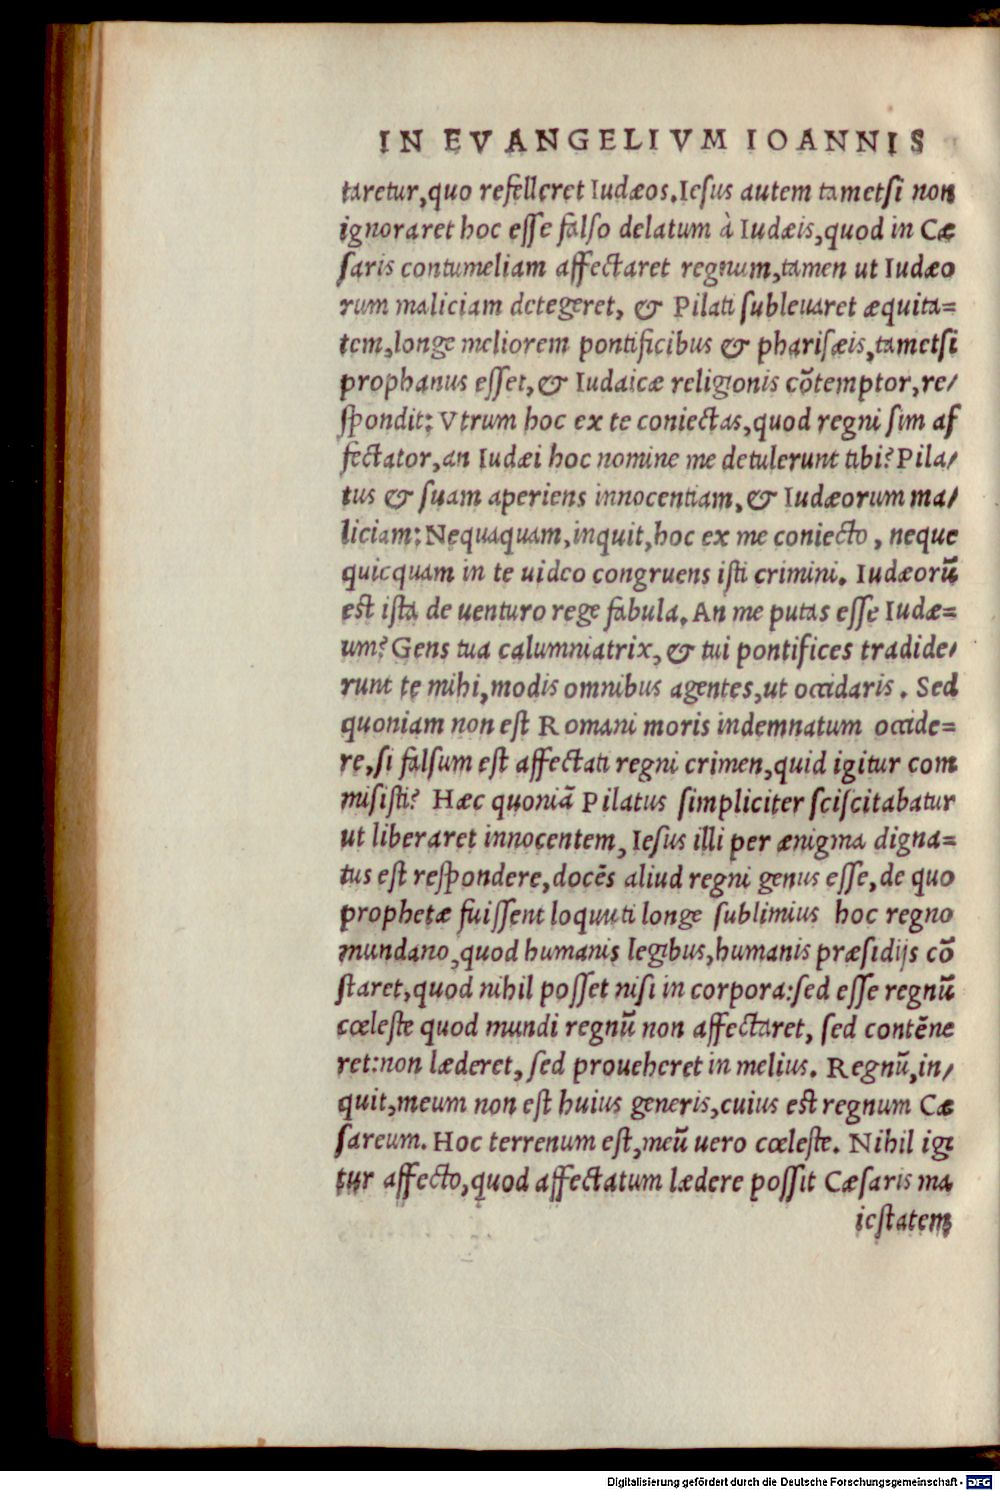 IN EVANGELIVM IOANNIS
taretur,quo refelleret Iudæos.Iesus autem tametsi non
ignoraret hoc esse falso delatum à Iudæis,quod in Cæ
saris contumeliam affectaret regnum,tamen ut Iudæo
rum maliciam detegeret, & Pilati subleuaret æquita=
tem,longe meliorem pontificibus & pharisæis,tametsi
prophanus esset,& Iudaicæ religionis cõtemptor,re/
spondit: Vtrum hoc ex te coniectas,quod regni sim af
fectator,an Iudæi hoc nomine me detulerunt tibi? Pila/
tus & suam aperiens innocentiam,& Iudæorum ma/
liciam: Nequaquam,inquit,hoc ex me coniecto, neque
quicquam in te uideo congruens isti crimini. Iudæorũ
est ista de uenturo rege fabula. An me putas esse Iudæ=
um? Gens tua calumniatrix, & tui pontifices tradide/
runt te mihi,modis omnibus agentes,ut occidaris. Sed
quoniam non est Romani moris indemnatum occide=
re,si falsum est affectati regni crimen,quid igitur com
misisti? Hæc quoniã Pilatus simpliciter sciscitabatur
ut liberaret innocentem, Iesus illi per ænigma digna=
tus est respondere,docẽs aliud regni genus esse,de quo
prophetæ fuissent loquuti longe sublimius hoc regno
mundano,quod humanis legibus,humanis præsidijs cõ
staret,quod nihil posset nisi in corpora:sed esse regnũ
cœleste quod mundi regnũ non affectaret, sed contẽne
ret:non læderet, sed proueheret in melius. Regnũ,in/
quit,meum non est huius generis,cuius est regnum Cæ
sareum. Hoc terrenum est,meũ uero cœleste. Nihil igi
tur affecto,quod affectatum lædere possit Cæsaris ma
iestatem
Digitalisierung gefördert durch die Deutsche Forschungsgemeinschaft - DFG